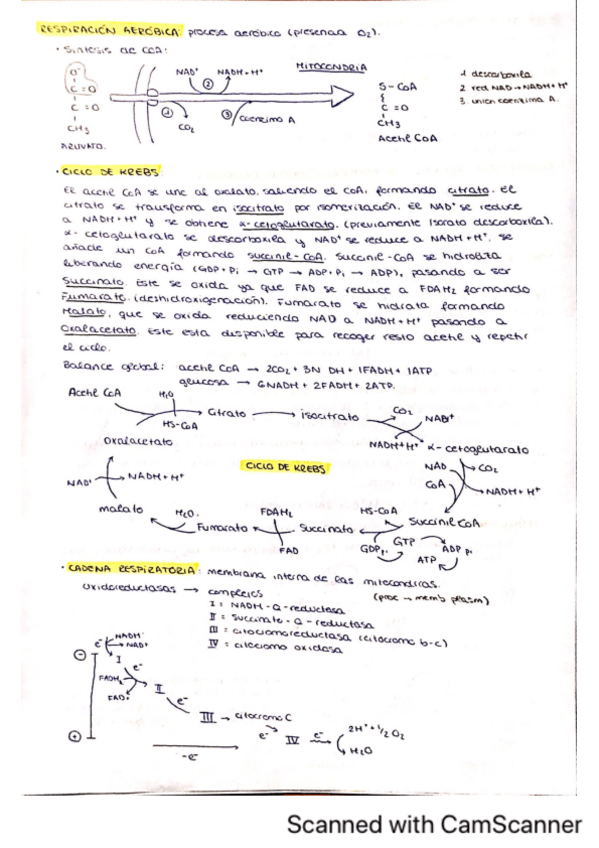 RESPIRACIÓN AERÓBICA: proceso aeróbico (presencia O₂).
· Síntesis de CoA:
MITOCONDRIA
O⁻ NAD⁺ NADH+H⁺ S-CoA 1 descarboxila
C=O ② C=O 2 red NAD → NADH+H⁺
C=O ① ③ CH₃ 3 union coenzima A.
CH₃ CO₂ coenzima A Acetil CoA
· CICLO DE KREBS.
El acetil CoA se une al oxalato, saliendo el CoA, formando citrato. El
citrato se transforma en isocitrato por isomerización. El NAD⁺ se reduce
a NADH+H⁺ y se obtiene α-cetoglutarato. (previamente Isocrato descarboxila).
α-cetoglutarato se descarboxila y NAD⁺ se reduce a NADH+H⁺, se
añade un CoA formando succinil-CoA. Succinil-CoA se hidroliza
liberando energía (GDP+Pi → GTP → ADP+Pi → ADP), pasando a ser
Succinato. Este se oxida ya que FAD se reduce a FDAH₂ formando
Fumarato. (deshidroxigenación). Fumarato se hidrata formando
Malato, que se oxida reduciendo NAD a NADH+H⁺ pasando a
Oxalacetato. Este esta disponible para recoger resto acetil y repetir
el ciclo.
Balance global: acetil CoA → 2CO₂ + 3N DH + 1FADH + 1ATP
glucosa → 6NADH + 2FADH + 2ATP.
Acetil CoA H₂O
Citrato isocitrato CO₂ NAD⁺
HS-CoA
Oxalacetato NADH+H⁺ α-cetoglutarato
CICLO DE KREBS NAD CO₂
NAD⁺ NADH+H⁺ CoA NADH+H⁺
malato H₂O. FDAH₂ HS-CoA
Fumarato Succinato Succinil CoA
FAD GDP Pi GTP ADP Pi
ATP
· CADENA RESPIRATORIA: membrana interna de las mitocondrias.
Oxidoreductasas → complejos (proc → memb plasm)
I = NADH-Q-reductasa
II = succinato-Q-reductasa
III = citocromoreductasa (citocromo b-c)
IV = citocromo oxidasa
⊖ e⁻ NADH NAD⁺
I e⁻
FADH₂ II
FAD e⁻
III → citocromo C
⊕ e⁻ IV e⁻ 2H⁺+½O₂
H₂O
-e⁻
Scanned with CamScanner